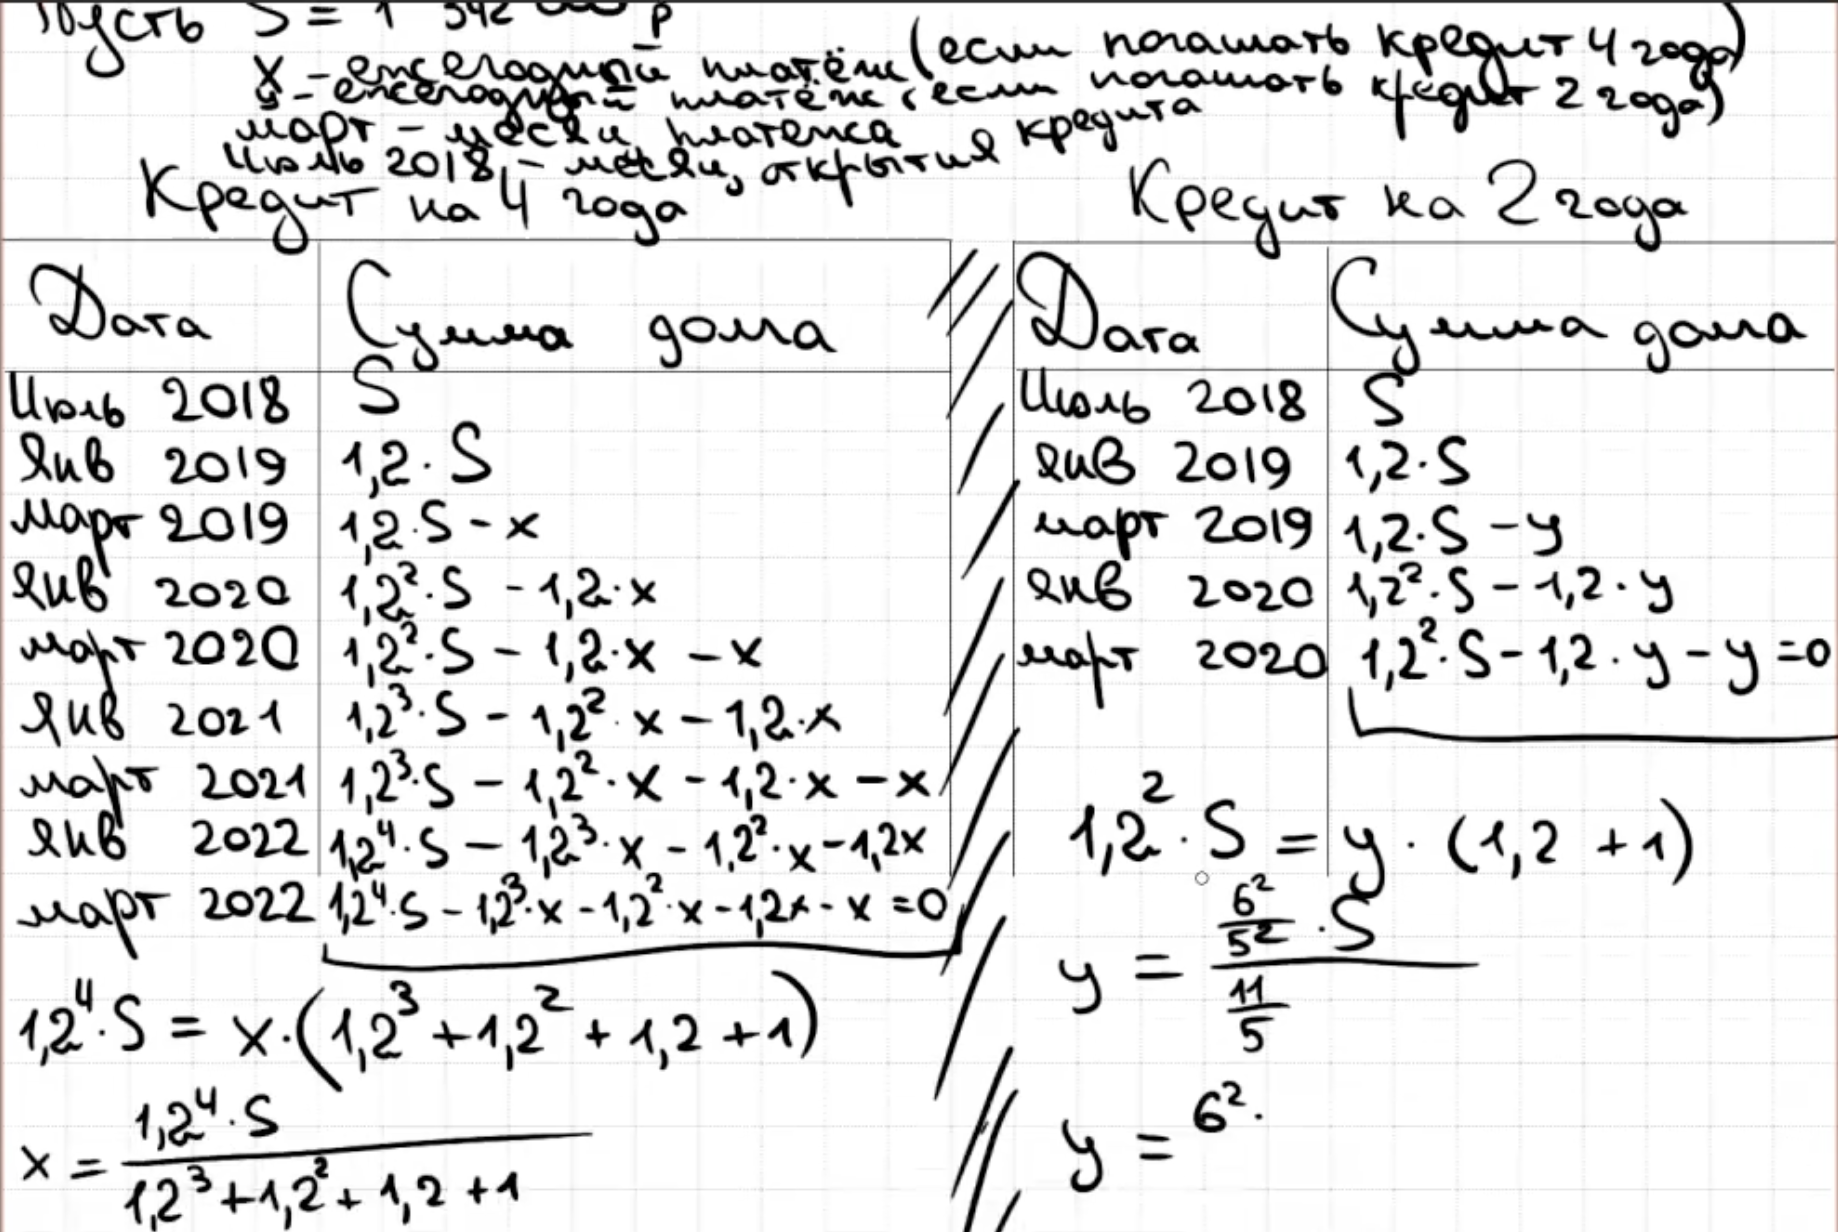 Пусть S = 1 342 000 р
x - ежегодный платёж (если погашать кредит 4 года)
y - ежегодный платёж (если погашать кредит 2 года)
март - месяц платежа
Июль 2018 - месяц открытия кредита
Кредит на 4 года
Дата Сумма долга
Июль 2018 S
Янв 2019 1,2·S
март 2019 1,2·S - x
Янв 2020 1,2²·S - 1,2·x
март 2020 1,2²·S - 1,2·x - x
Янв 2021 1,2³·S - 1,2²·x - 1,2·x
март 2021 1,2³·S - 1,2²·x - 1,2·x - x
Янв 2022 1,2⁴·S - 1,2³·x - 1,2²·x - 1,2x
март 2022 1,2⁴·S - 1,2³·x - 1,2²·x - 1,2x - x = 0
1,2⁴·S = x·(1,2³ + 1,2² + 1,2 + 1)
x = 1,2⁴·S / 1,2³ + 1,2² + 1,2 + 1
Кредит на 2 года
Дата Сумма долга
Июль 2018 S
Янв 2019 1,2·S
март 2019 1,2·S - y
Янв 2020 1,2²·S - 1,2·y
март 2020 1,2²·S - 1,2·y - y = 0
1,2²·S = y·(1,2 + 1)
y = 6²/5² · S / 11/5
y = 6²·